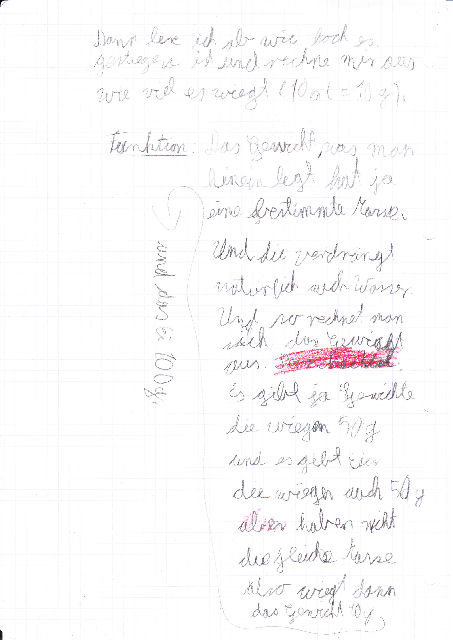 Dann lese ich ab wie hoch es
gestiegen ist und rechne mir aus
wie viel es wiegt (10ml = 10g).
Funktion: Das Gewicht, was man
hinein legt hat ja
eine bestimmte Masse.
Und die verdrängt
natürlich auch Wasser.
Und so rechnet man
sich das Gewicht
aus.
Es gibt ja Gewichte
die wiegen 50g
und es gibt Eier
die wiegen auch 50g
aber haben nicht
die gleiche Masse
also wiegt dann
das Gewicht 10g,
und das Ei 100g.